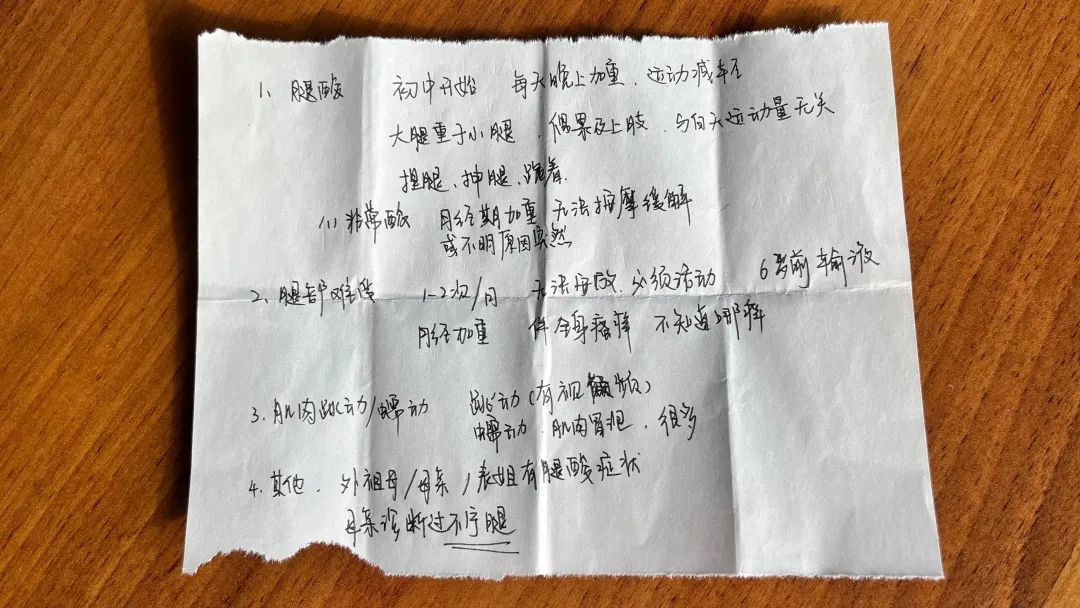 1、腿酸 初中开始 每天晚上加重、运动减轻
大腿重于小腿、偶累及上肢、与白天运动量无关
捏腿、抻腿、跪着
(1) 非常酸 月经期加重 无法按摩缓解
或不明原因突然
2、腿部难受 1-2次/月 无法安放、必须活动 6岁前输液
月经加重 伴全身瘙痒 不知道哪痒
3、肌肉跳动/蠕动 跳动(有视频)
蠕动、肌肉冒泡、很多
4、其他、外祖母/母亲/表姐有腿酸症状
母亲诊断过不宁腿